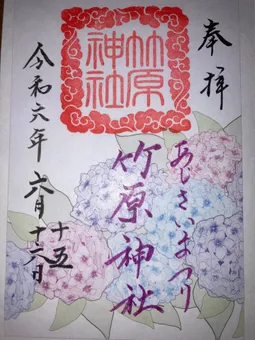 奉拝
竹原神社
あじさいまつり
竹原神社
令和六年 六月 十五 十六日